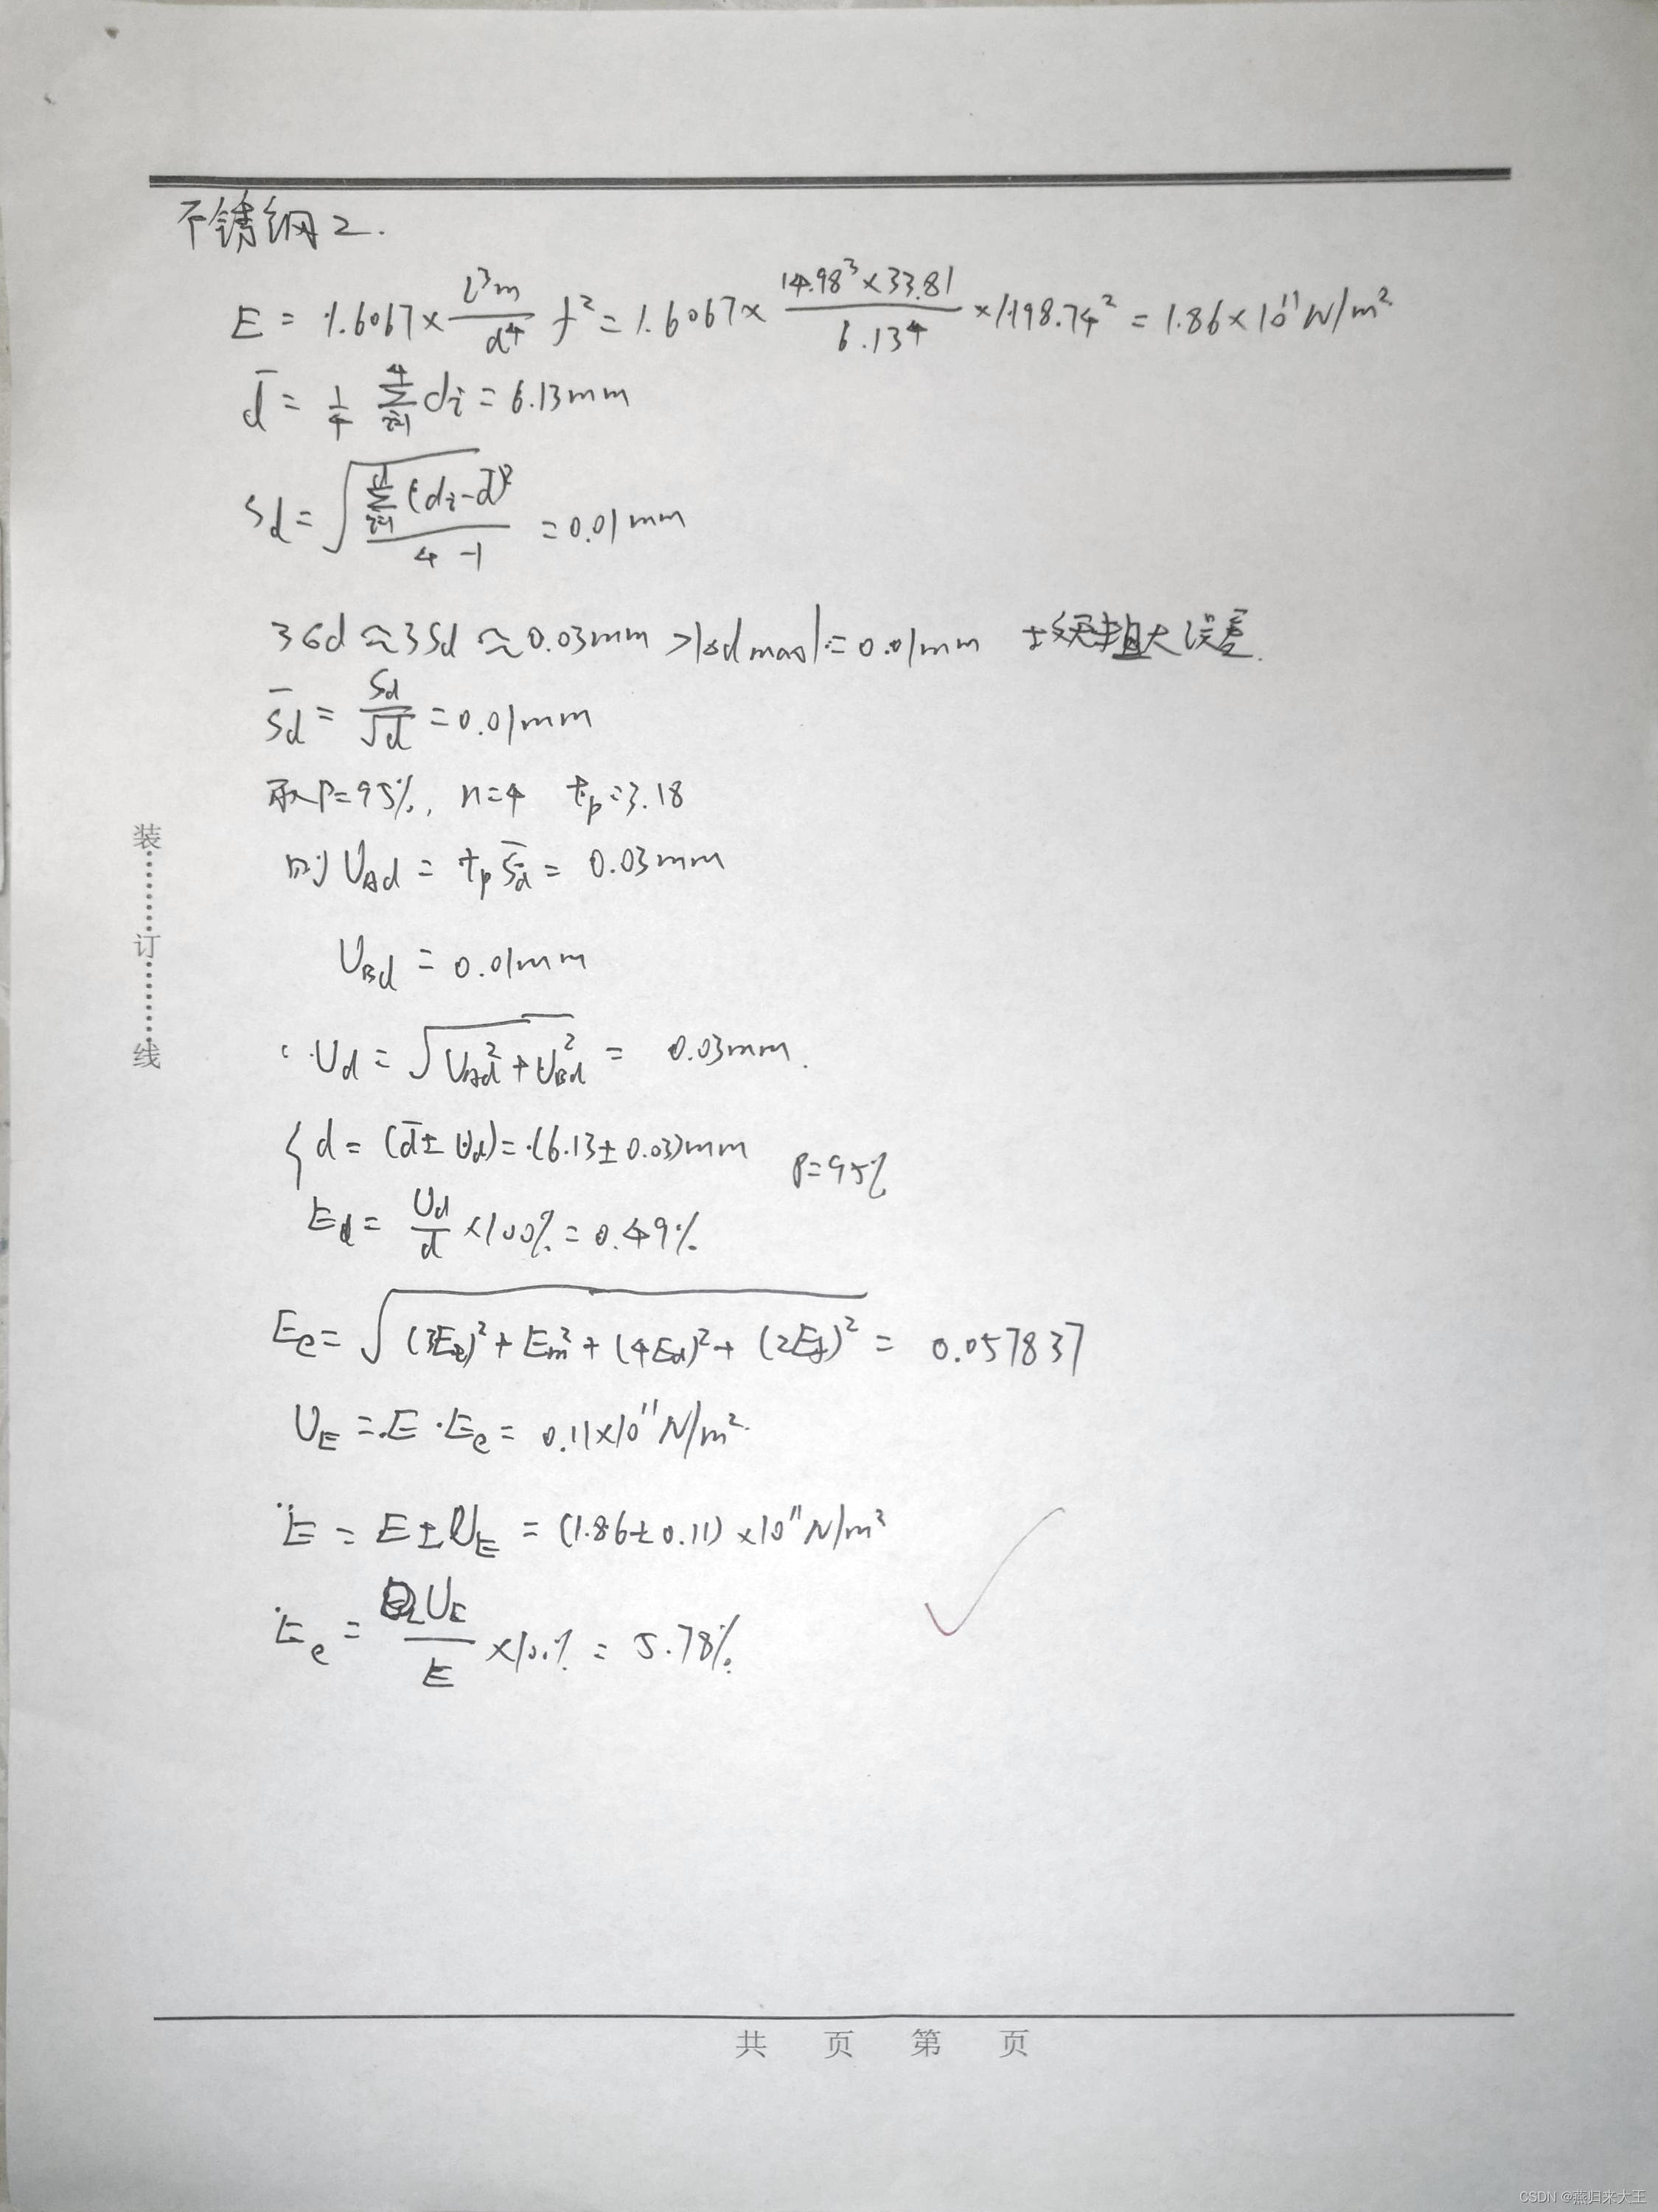 不锈钢2.
E = 1.6067 × \frac{l^3 m}{d^4} f^2 = 1.6067 × \frac{14.98^3 × 33.81}{6.13^4} × 1198.74^2 = 1.86 × 10^{11} N/m^2
\bar{d} = \frac{1}{4} \sum_{i=1}^{4} d_i = 6.13mm
S_d = \sqrt{\frac{\sum_{i=1}^{4} (d_i - \bar{d})^2}{4-1}} = 0.01mm
3σd ≈ 3Sd ≈ 0.03mm > |δd max| = 0.01mm 粗大误差.
\bar{S}_d = \frac{S_d}{\sqrt{d}} = 0.01mm
取P=95%, n=4 t_p=3.18
则 U_{Ad} = t_p \bar{S}_d = 0.03mm
U_{Bd} = 0.01mm
∴ U_d = \sqrt{U_{Ad}^2 + U_{Bd}^2} = 0.03mm.
d = (\bar{d} ± U_d) = (6.13 ± 0.03)mm
P=95%
E_d = \frac{U_d}{d} × 100% = 0.49%
E_e = \sqrt{(3E_l)^2 + E_m^2 + (4E_d)^2 + (2E_f)^2} = 0.057837
U_E = E · E_e = 0.11 × 10^{11} N/m^2
∴ E = E ± U_E = (1.86 ± 0.11) × 10^{11} N/m^2
E_e = \frac{U_E}{E} × 100% = 5.78%
装
订
线
共 页 第 页
CSDN @燕归来大王